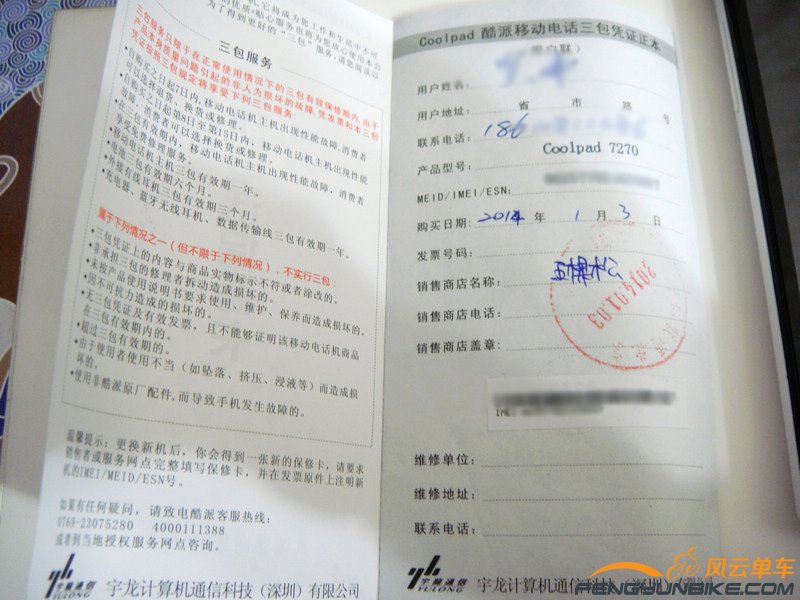 它将成为您工作和生活中不可
的优质贴心服务也将为您放心使用本公
为了得到更好的“三包”服务，请您阅读以
三包服务
三包服务只限于在正常使用情况下的三包有效保修期内，由于
产品本身质量问题引起的非人为损坏的故障，凭发票和本三包
凭证按照三包规定将享受下列三包服务：
•自购买之日起7日内，移动电话机主机出现性能故障，消费者
可以选择退货、换货或修理。
•自购买之日起第8日至第15日内，移动电话机主机出现性能
故障，消费者可以选择换货或修理。
•在三包有效期内，移动电话机主机出现性能故障，消费者
享受免费修理服务。
•移动电话机主机三包有效期一年。
•电池三包有效期六个月。
•外接有线耳机三包有效期三个月。
•充电器、蓝牙无线耳机、数据传输线三包有效期一年。
属于下列情况之一（但不限于下列情况），不实行三包：
•三包凭证上的内容与商品实物标示不符或者涂改的。
•非承担三包的修理者拆动造成损坏的。
•未按产品使用说明书要求使用、维护、保养而造成损坏的。
•因不可抗力造成的损坏的。
•无三包凭证及有效发票，且不能够证明该移动电话机商品
在三包有效期内的。
•超过三包有效期的。
•由于使用者使用不当（如坠落、挤压、浸液等）而造成损
坏的。
•使用非酷派原厂配件,而导致手机发生故障的。
温馨提示：更换新机后，你会得到一张新的保修卡，请要求
销售者或服务网点完整填写保修卡，并在发票原件上注明新
机的IMEI/MEID/ESN号。
如果有任何疑问，请致电酷派客服热线：
0769-23075280 4000111388
或者到当地授权服务网点咨询。
宇龙通信
YULONG
宇龙计算机通信科技（深圳）有限公司
Coolpad 酷派移动电话三包凭证正本
（用户联）
用户姓名：
用户地址： 省 市 路 号
联系电话：186
产品型号： Coolpad 7270
MEID/IMEI/ESN：
购买日期：2014 年 1 月 3 日
发票号码：
销售商店名称：五棵松
销售商店电话：
销售商店盖章：
2014.01.03
维修单位：
维修地址：
联系电话：
宇龙通信
YULONG
宇龙计算机通信科技（深圳）有限公司
风云单车
FENGYUNBIKE.COM